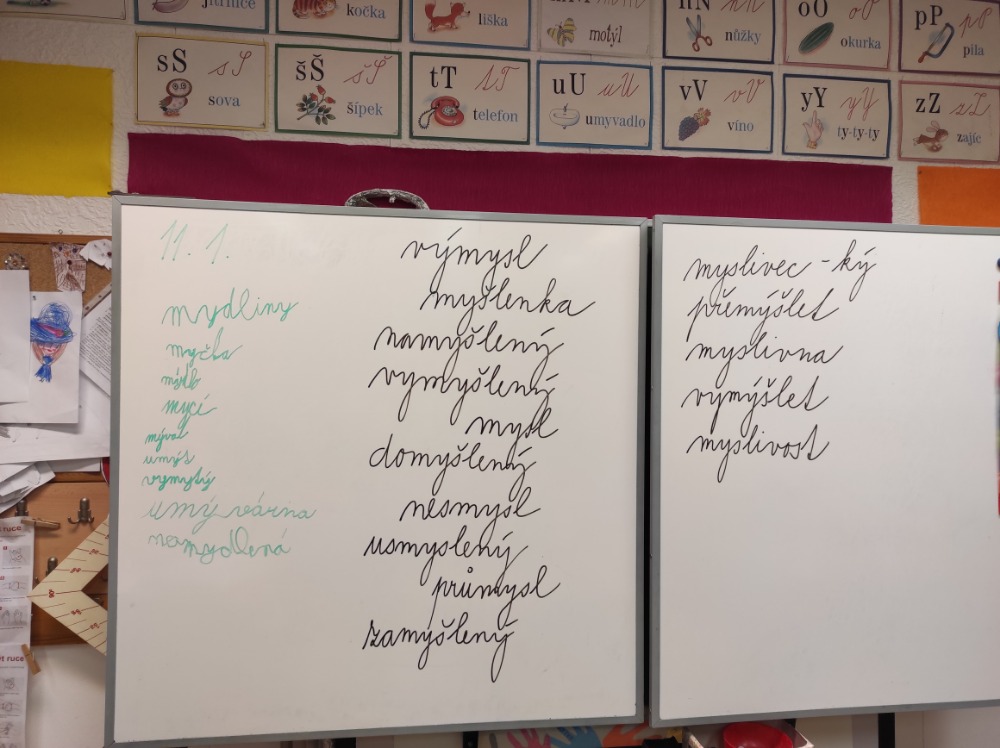 jitrnice
kočka
liška
motýl
nN nN
nůžky
oO oO
okurka
pP pP
pila
sS sS
sova
šŠ šŠ
šípek
tT tT
telefon
uU uU
umyvadlo
vV vV
víno
yY yY
ty-ty-ty
zZ zZ
zajíc
11. 1.
mydliny
myčka
mýdlo
mycí
mýval
umýt
vymytý
umývárna
namydlená
výmysl
myšlenka
namyšlený
vymyšlený
mysl
domyšlený
nesmysl
usmyslený
průmysl
zamýšlený
myslivec - ký
přemýšlet
myslivna
vymýšlet
myslivost